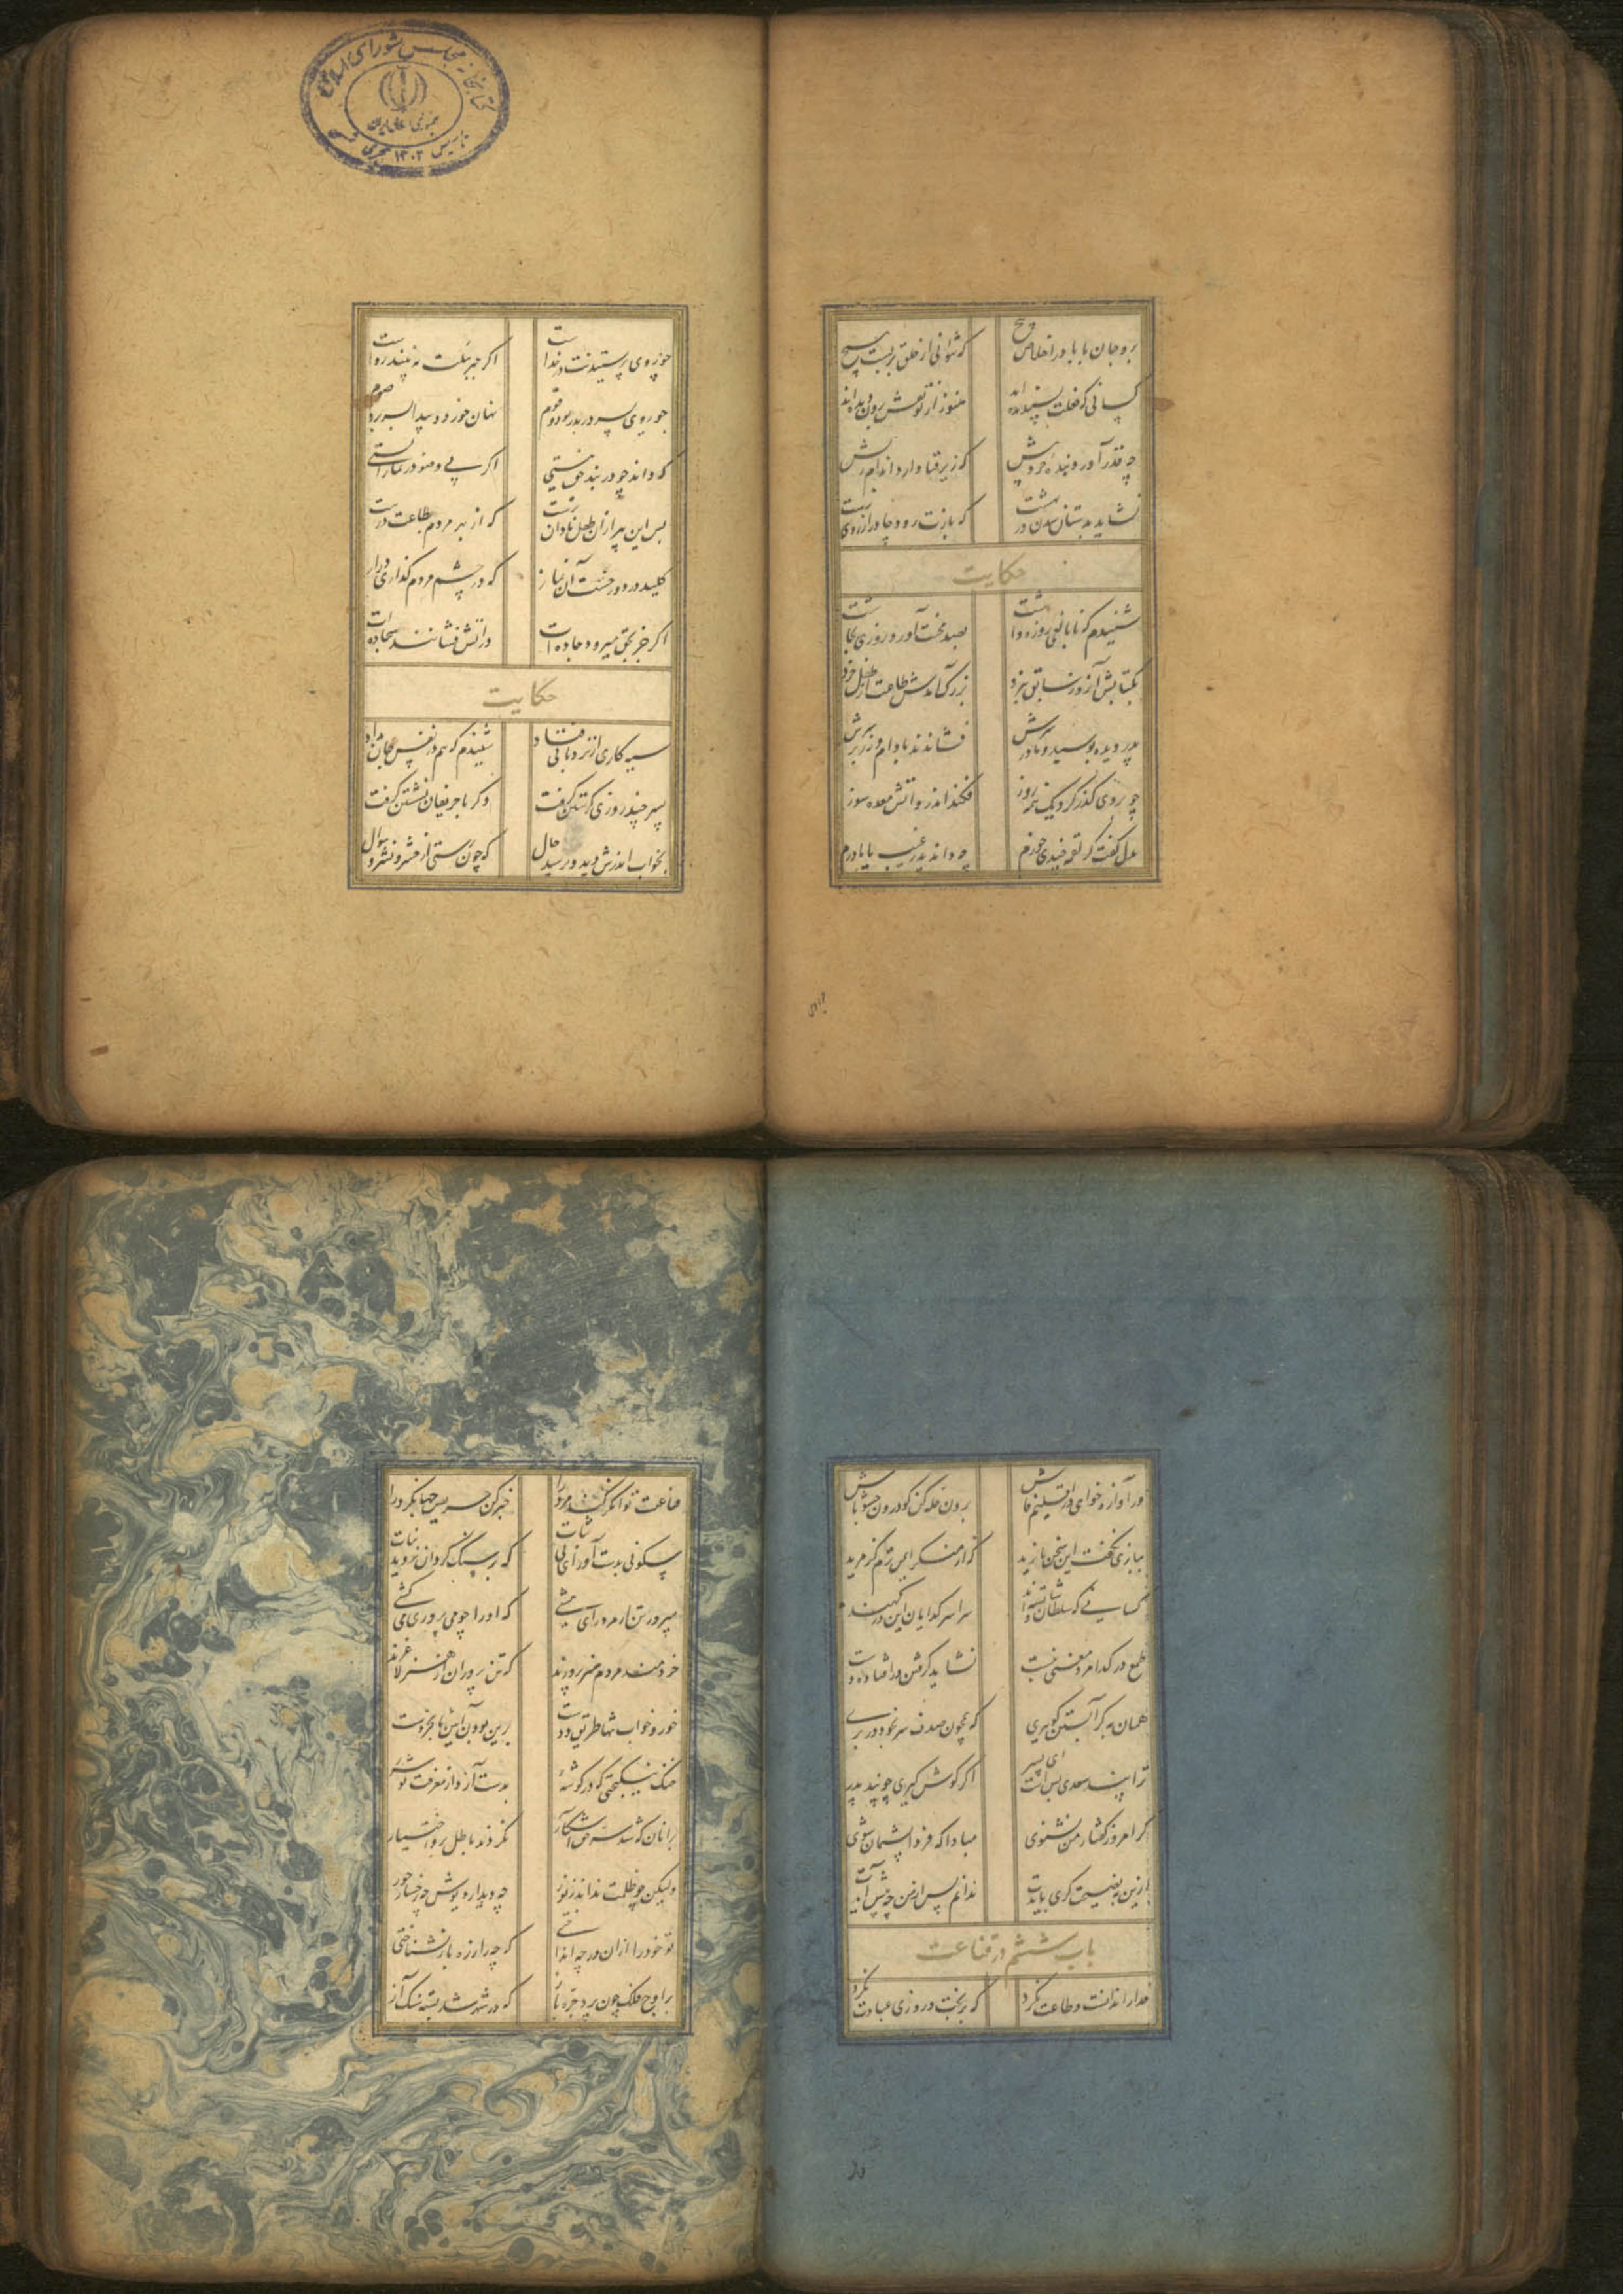 کتابخانه مجلس شورای اسلامی
جمهوری اسلامی ایران
تاسیس ۱۳۰۲ هجری
برو جان بابا در اخلاص پیچ که نتوانی از خلق بر بست هیچ
کسانی که فعلت پسندیده‌اند هنوز از تو نقش برون دیده‌اند
چه قدر آورد بنده حوروش که زیر قبا دارد اندام پیش
نشاید بدستان شدن در بهشت که بازت رود چادر از روی زشت
حکایت
شنیدم که نابالغی روزه داشت بصد محنت آورد روزی بچاشت
بکتابش آن روز سابق نبرد بزرگ آمدش طاعت از طفل خرد
پدر دیده بوسید و مادر سرش فشاندند بادام و زر بر سرش
چو بروی گذر کرد یک نیمه روز فکند اندرو آتش معده سوز
بدل گفت گر لقمه چندی خورم چه داند پدر غیب یا مادرم
چو روی پرستیدنت در خداست اگر جبرئیلت نه بیند رواست
چو روی پسر در پدر بود و قوم نهان خورد و پیدا بسر برد صوم
که داند چو در بند حق نیستی اگر بی وضو در نماز ایستی
پس این پیر از آن طفل نادان‌ترست که از بهر مردم بطاعت درست
کلید در دوزخست آن نماز که در چشم مردم گذاری دراز
اگر جز بحق میرود جاده‌ات در آتش فشانند سجاده‌ات
حکایت
سیه کاری از نردبانی فتاد شنیدم که هم در نفس جان بداد
پسر چند روزی گرستن گرفت دگر با حریفان نشستن گرفت
بخواب اندرش دید و پرسید حال که چون رستی از حشر و نشر و سوال
ور آوازه خواهی در اقلیم فاش برون حله کن گو درون حشو باش
ببازی نگفت این سخن بایزید که از منکر ایمن ترم کز مرید
کسانی که سلطان و شاهنشهند سراسر گدایان این درگهند
طمع در گدا مرد معنی نبست نشاید گرفتن در افتاده دست
همان به گر آبستن گوهری که همچون صدف سر بخود در بری
ترا پند سعدی بس است ای پسر اگر گوش گیری چو پند پدر
گر امروز گفتار من نشنوی مبادا که فردا پشیمان شوی
ازین به نصیحت گری بایدت ندانم پس از من چه پیش آیدت
باب ششم در قناعت
خدا را ندانست و طاعت نکرد که بر بخت و روزی عبادت نکرد
قناعت توانگر کند مرد را خبر کن حریص جهانگرد را
سکونی بدست آور ای بی ثبات که بر سنگ گردان نروید نبات
مپرور تن ار مرد رای و هشی که او را چو می پروری میکشی
خردمند مردم هنر پرورند که تن پروران از هنر لاغرند
خور و خواب تنها طریق ددست برین بودن آیین نابخردست
خنک نیکبختی که در گوشه بدست آرد از معرفت توشه
بر آنان که شد سر حق آشکار نکردند باطل برو اختیار
ولیکن چو ظلمت نداند ز نور چه دیدار دیوش چه رخسار حور
تو خود را از آن در چه انداختی که چه را ز ره باز نشناختی
بر اوج فلک چون پرد جره باز که در شهپرش بسته سنگ آز